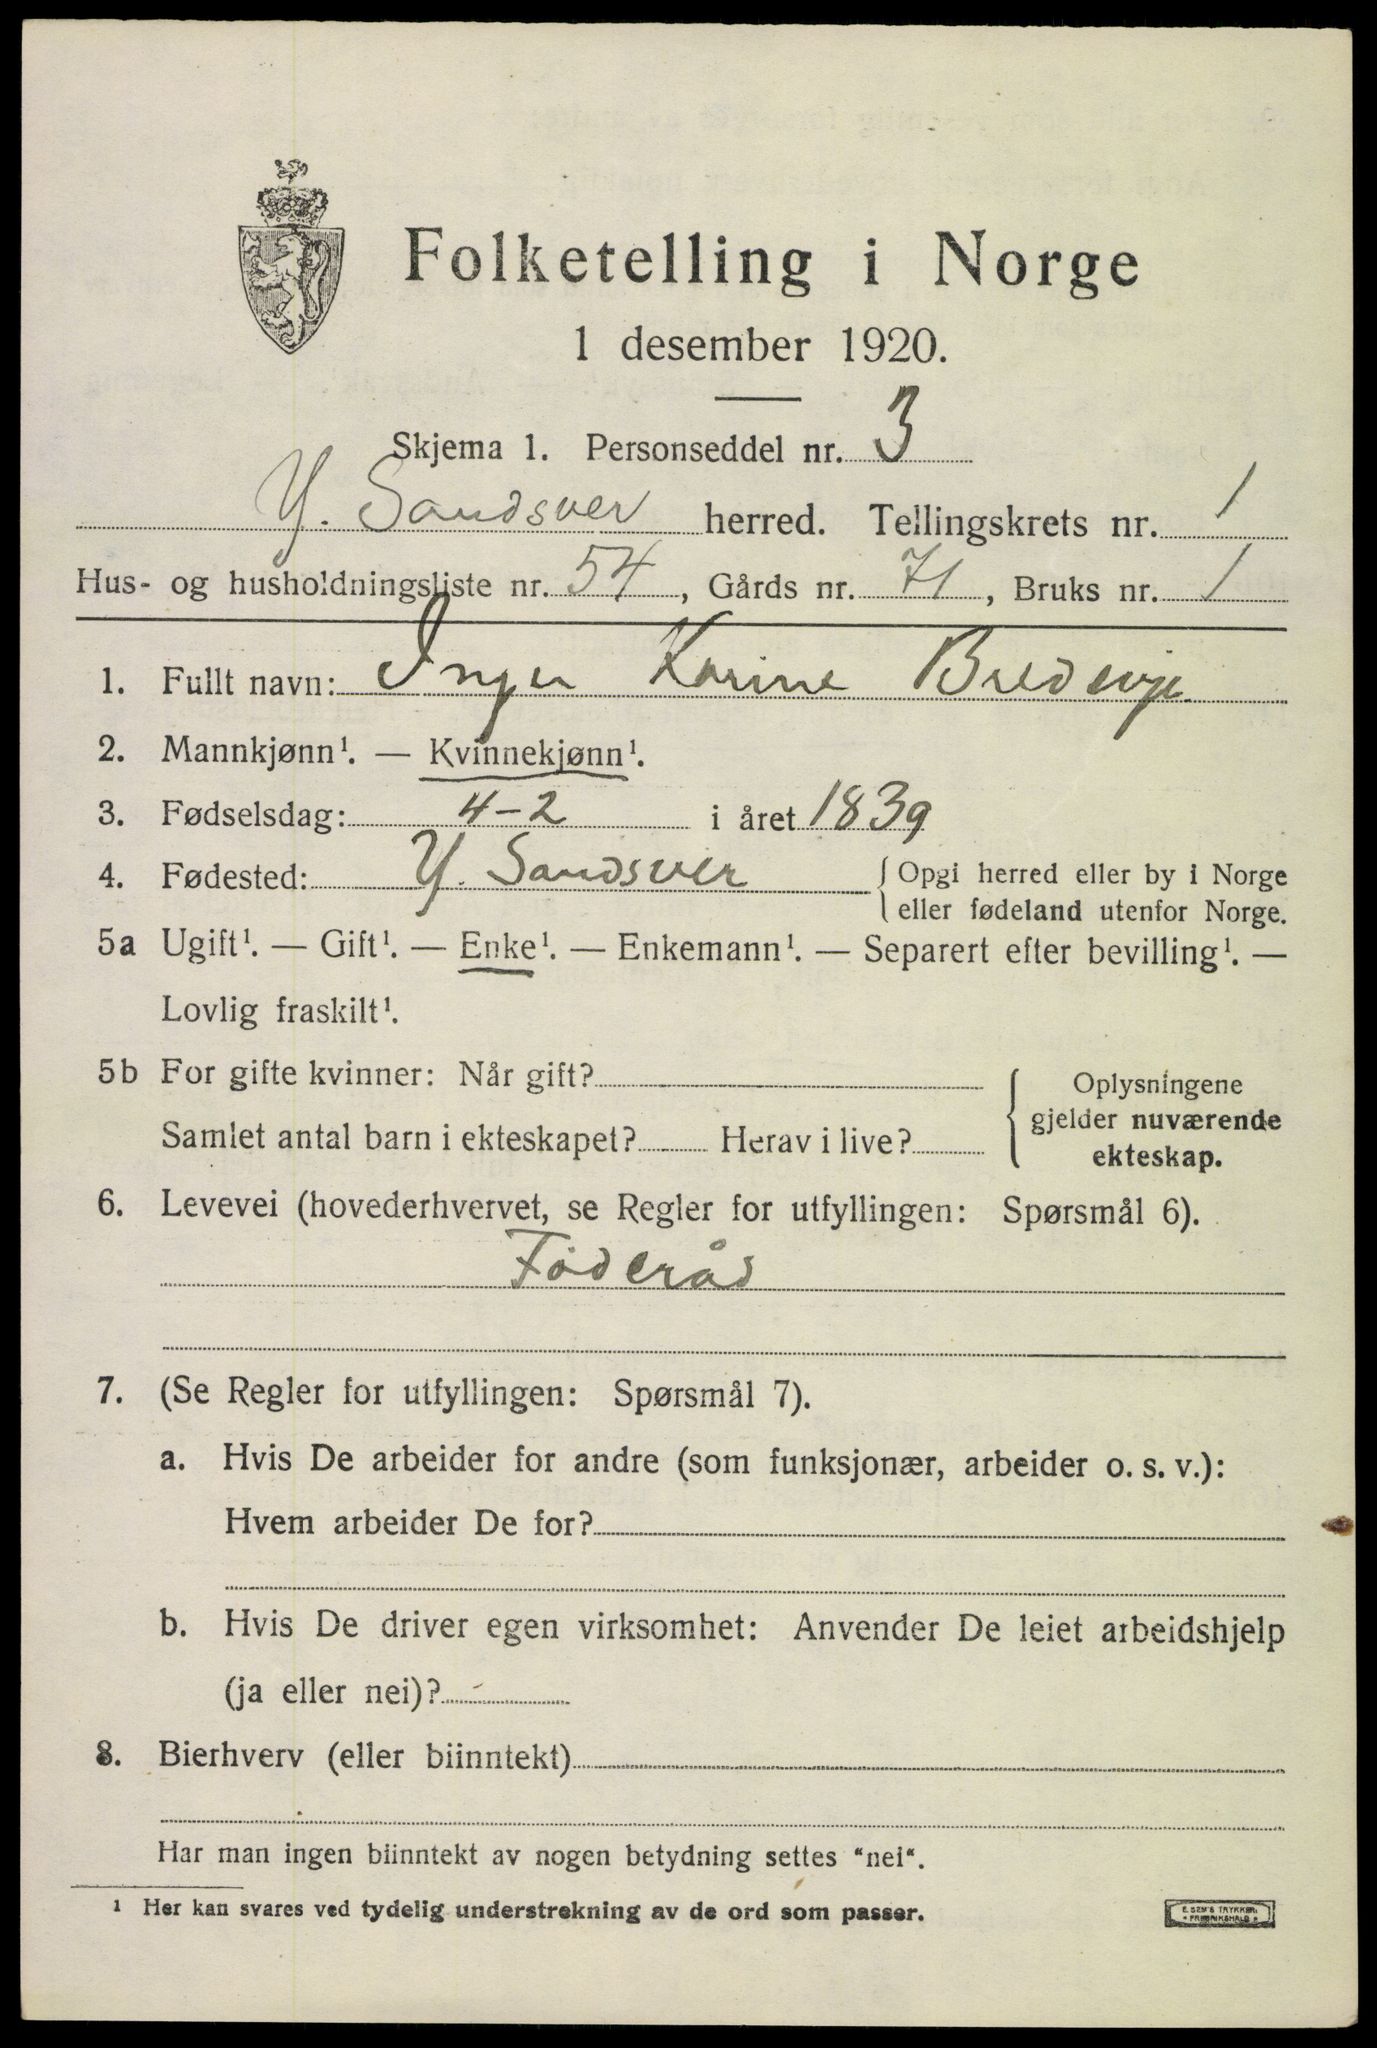 Folketelling i Norge
1 desember 1920.
Skjema 1. Personseddel nr. 3
Y. Sandsver herred. Tellingskrets nr. 1
Hus- og husholdningsliste nr. 54, Gårds nr. 71, Bruks nr. 1
1. Fullt navn: Inger Karine Bredevje
2. Mannkjønn¹. — Kvinnekjønn¹.
3. Fødselsdag: 4-2 i året 1839
4. Fødested: Y. Sandsver { Opgi herred eller by i Norge
eller fødeland utenfor Norge.
5a Ugift¹. — Gift¹. — Enke¹. — Enkemann¹. — Separert efter bevilling¹. —
Lovlig fraskilt¹.
5b For gifte kvinner: Når gift?
Samlet antal barn i ekteskapet? Herav i live?
{ Oplysningene
gjelder nuværende
ekteskap.
6. Levevei (hovederhvervet, se Regler for utfyllingen: Spørsmål 6).
Føderåd
7. (Se Regler for utfyllingen: Spørsmål 7).
a. Hvis De arbeider for andre (som funksjonær, arbeider o. s. v.):
Hvem arbeider De for?
b. Hvis De driver egen virksomhet: Anvender De leiet arbeidshjelp
(ja eller nei)?
8. Bierhverv (eller biinntekt)
Har man ingen biinntekt av nogen betydning settes "nei".
¹ Her kan svares ved tydelig understrekning av de ord som passer.
E. SEM'S TRYKKERI
* FREDRIKSHALD *